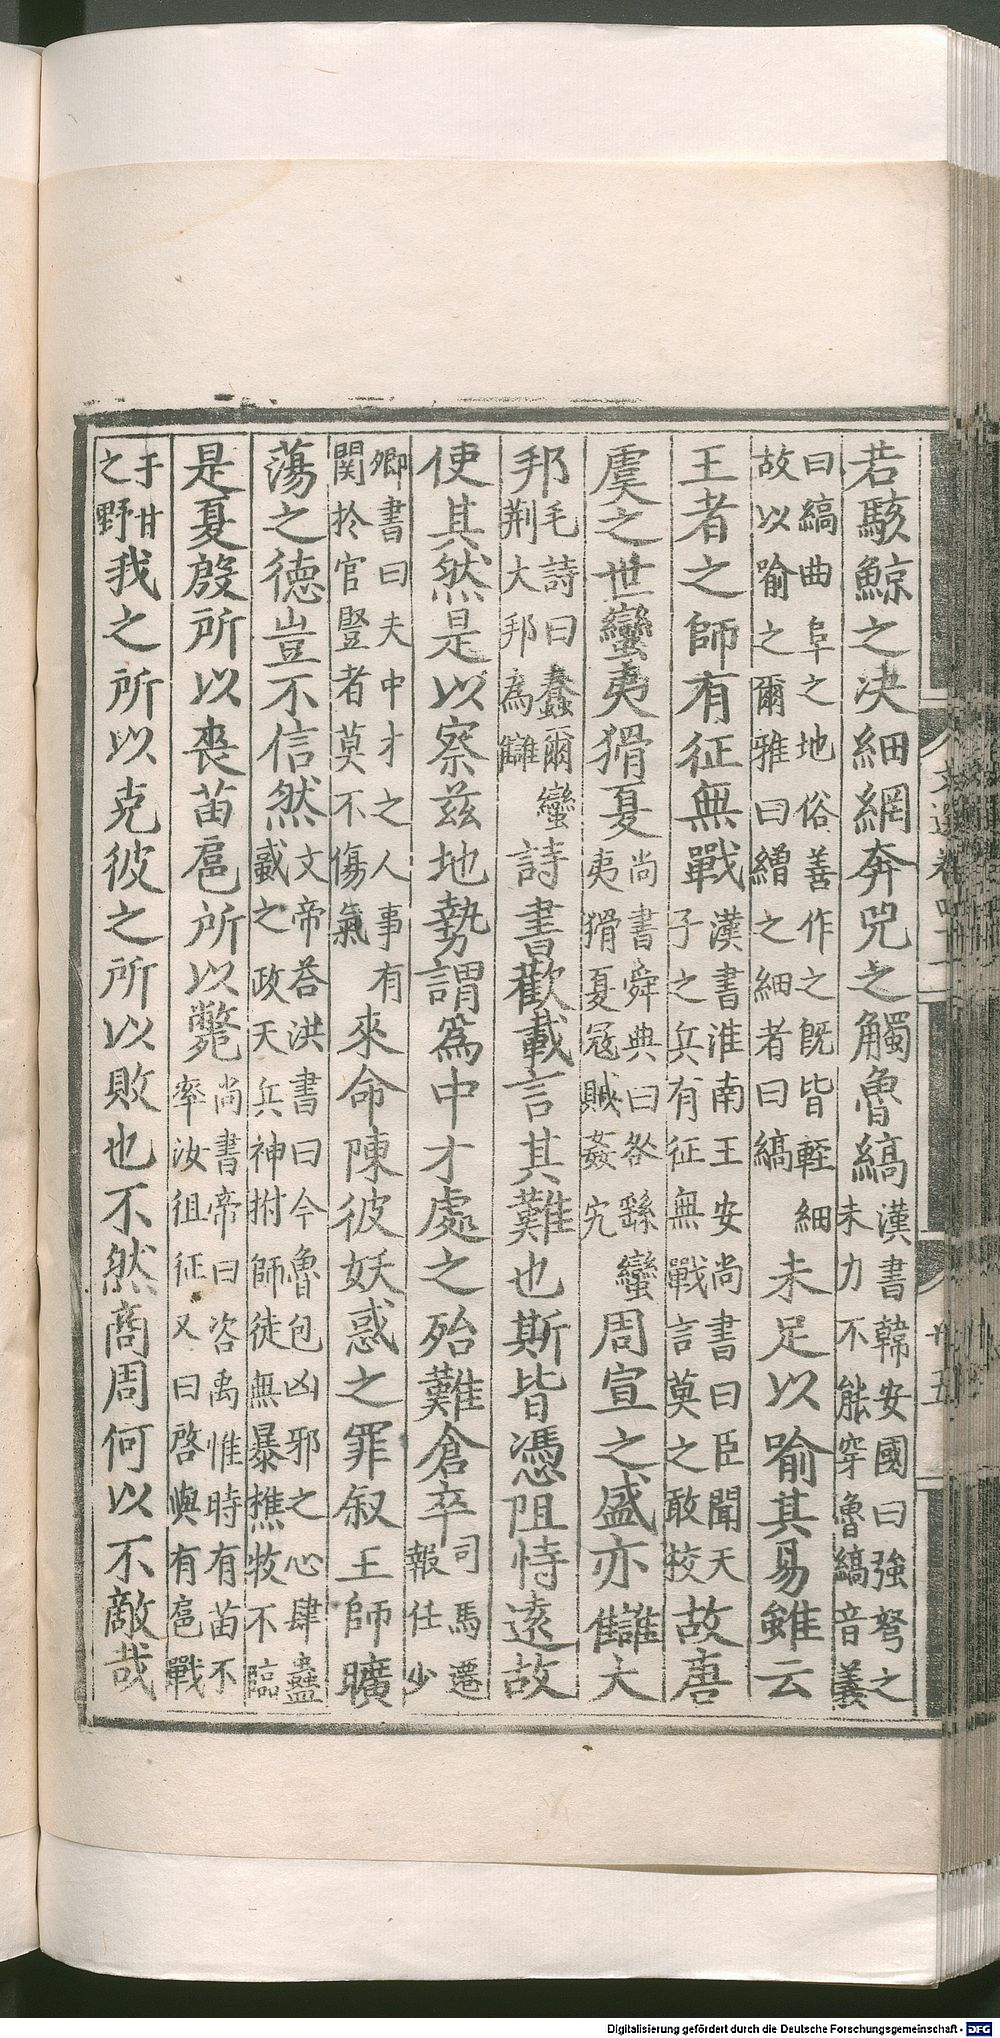 若駭鯨之决細網奔兕之觸魯縞漢書韓安國曰強弩之末力不能穿魯縞音義
曰縞曲阜之地俗善作之旣皆輕細故以喻之爾雅曰繒之細者曰縞未足以喻其易雖云
王者之師有征無戰漢書淮南王安尚書曰臣聞天子之兵有征無戰言莫之敢挍故唐
虞之世蠻夷猾夏尚書舜典曰咎繇蠻夷猾夏寇賊姦宄周宣之盛亦讎大
邦毛詩曰蠢爾蠻荆大邦為讎詩書歎載言其難也斯皆憑阻恃遠故
使其然是以察茲地勢謂爲中才處之殆難倉卒司馬遷報任少
卿書曰夫中才之人事有関扵官豎者莫不傷氣來命陳彼妖惑之罪叙王師曠
蕩之德豈不信然文帝荅洪書曰今魯包凶邪之心肆蠱戲之政天兵神拊師徒無暴樵牧不臨
是夏殷所以喪苗扈所以斃尚書帝曰咨禹惟時有苗不率汝徂征又曰啓與有扈戰
于甘之野我之所以克彼之所以敗也不然商周何以不敵哉
文選卷四十一
廿五
Digitalisierung gefördert durch die Deutsche Forschungsgemeinschaft - DFG